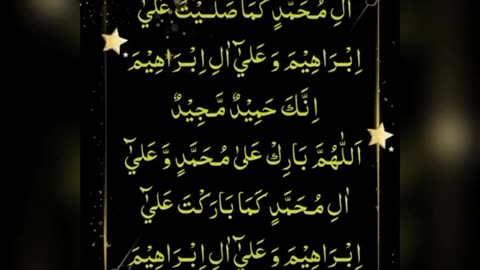 اٰلِ مُحَمَّدٍ كَمَا صَلَّيْتَ عَلٰٓي
اِبْرَاهِيْمَ وَ عَلٰٓي اٰلِ اِبْرَاهِيْمَ
اِنَّكَ حَمِيْدٌ مَّجِيْدٌ
اَللّٰهُمَّ بَارِكْ عَلٰى مُحَمَّدٍ وَّ عَلٰٓي
اٰلِ مُحَمَّدٍ كَمَا بَارَكْتَ عَلٰٓي
اِبْرَاهِيْمَ وَ عَلٰٓي اٰلِ اِبْرَاهِيْمَ